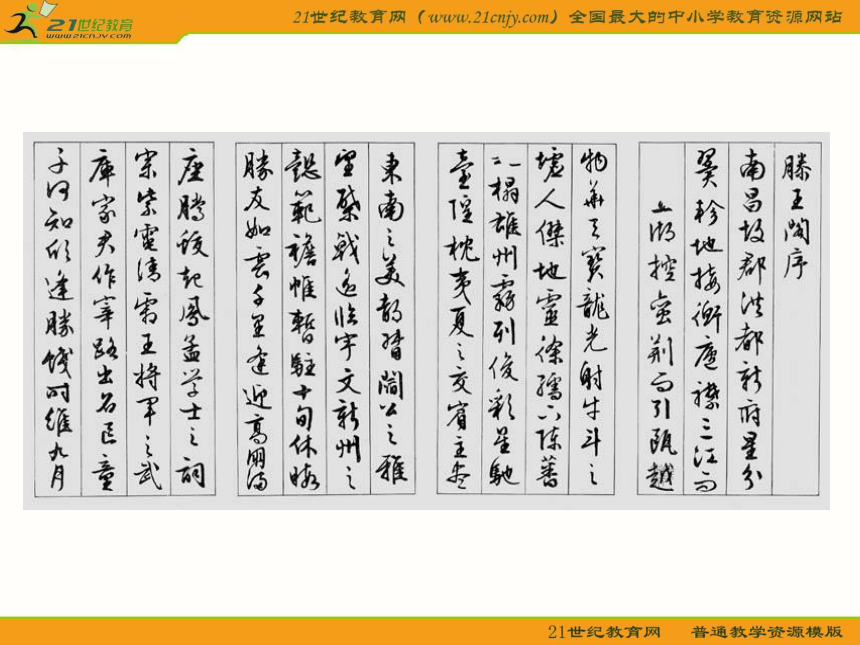 21世纪教育
www.21CNJY.COM
21世纪教育网（www.21cnjy.com）全国最大的中小学教育资源网站
滕王閣序
南昌故郡洪都新府星分
翼軫地接衡廬襟三江而
五湖控蠻荊而引甌越
物華天寶龍光射牛斗之
墟人傑地靈徐孺下陳蕃
之榻雄州霧列俊彩星馳
臺隍枕夷夏之交賓主盡
東南之美都督閻公之雅
望棨戟遙臨宇文新州之
懿範襜帷暫駐十旬休暇
勝友如雲千里逢迎高朋滿
座騰蛟起鳳孟学士之詞
宗紫電清霜王將軍之武
庫家君作宰路出名區童
子何知躬逢勝餞時維九月
21世纪教育网 普通教学资源模版